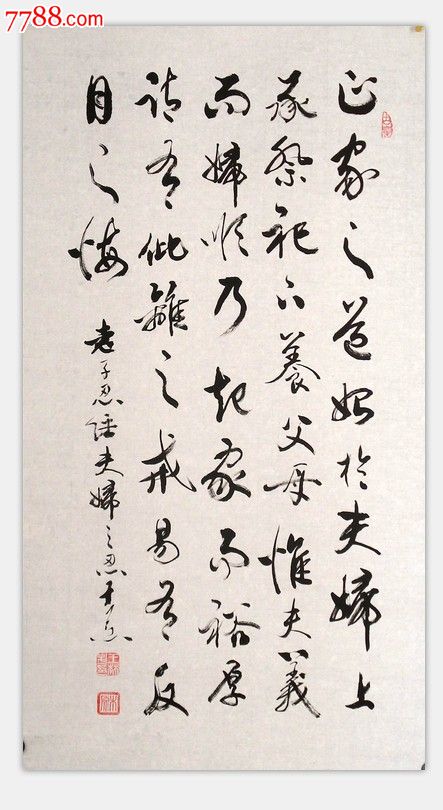 7788.com
正家之道始於夫婦上
承祭祀下養父母惟夫義
而婦順乃起家而裕厚
詩有仳離之戒易有反
目之悔
老子忍夫婦之忍